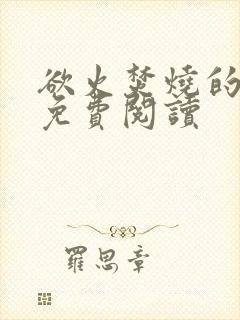 欲火焚燒的
免費閱讀
羅思章